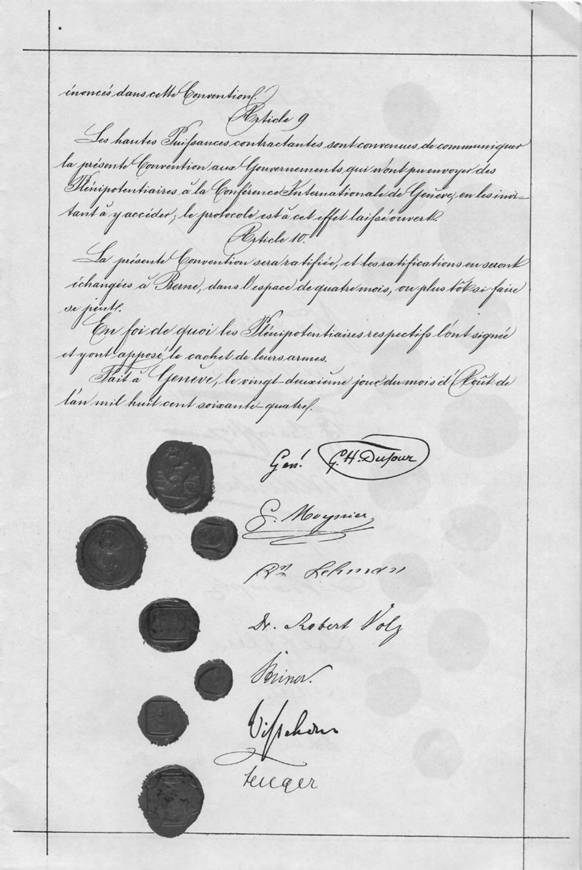 énoncés dans cette Convention.
Article 9
Les hautes Puissances contractantes sont convenues de communiquer
la présente Convention aux Gouvernements qui n'ont pu envoyer des
Plénipotentiaires à la Conférence Internationale de Genève, en les invi-
tant à y accéder; le protocole est à cet effet laissé ouvert.
Article 10.
La présente Convention sera ratifiée, et les ratifications en seront
échangées à Berne, dans l'espace de quatre mois, ou plus tôt si faire
se peut.
En foi de quoi les Plénipotentiaires respectifs l'ont signée
et y ont apposé le cachet de leurs armes.
Fait à Genève, le vingt-deuxième jour du mois d'Août de
l'an mil huit cent soixante-quatre.
Genl. G. H. Dufour
G. Moynier
Dr. Lehman
Dr. Robert Volz
Steiner.
Visschers
Fenger